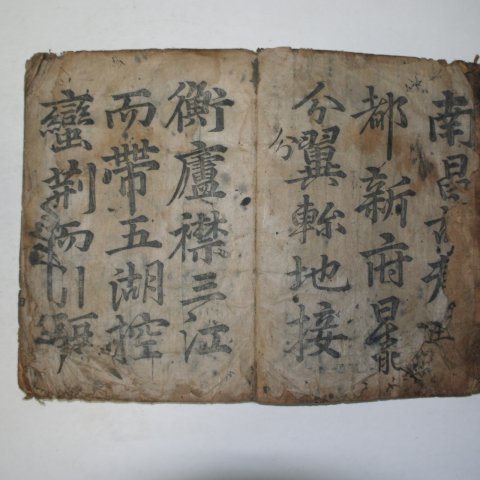 南昌故
都新府星
分翼軫地接
分
衡廬襟三江
而帶五湖控
蠻荊而引甌